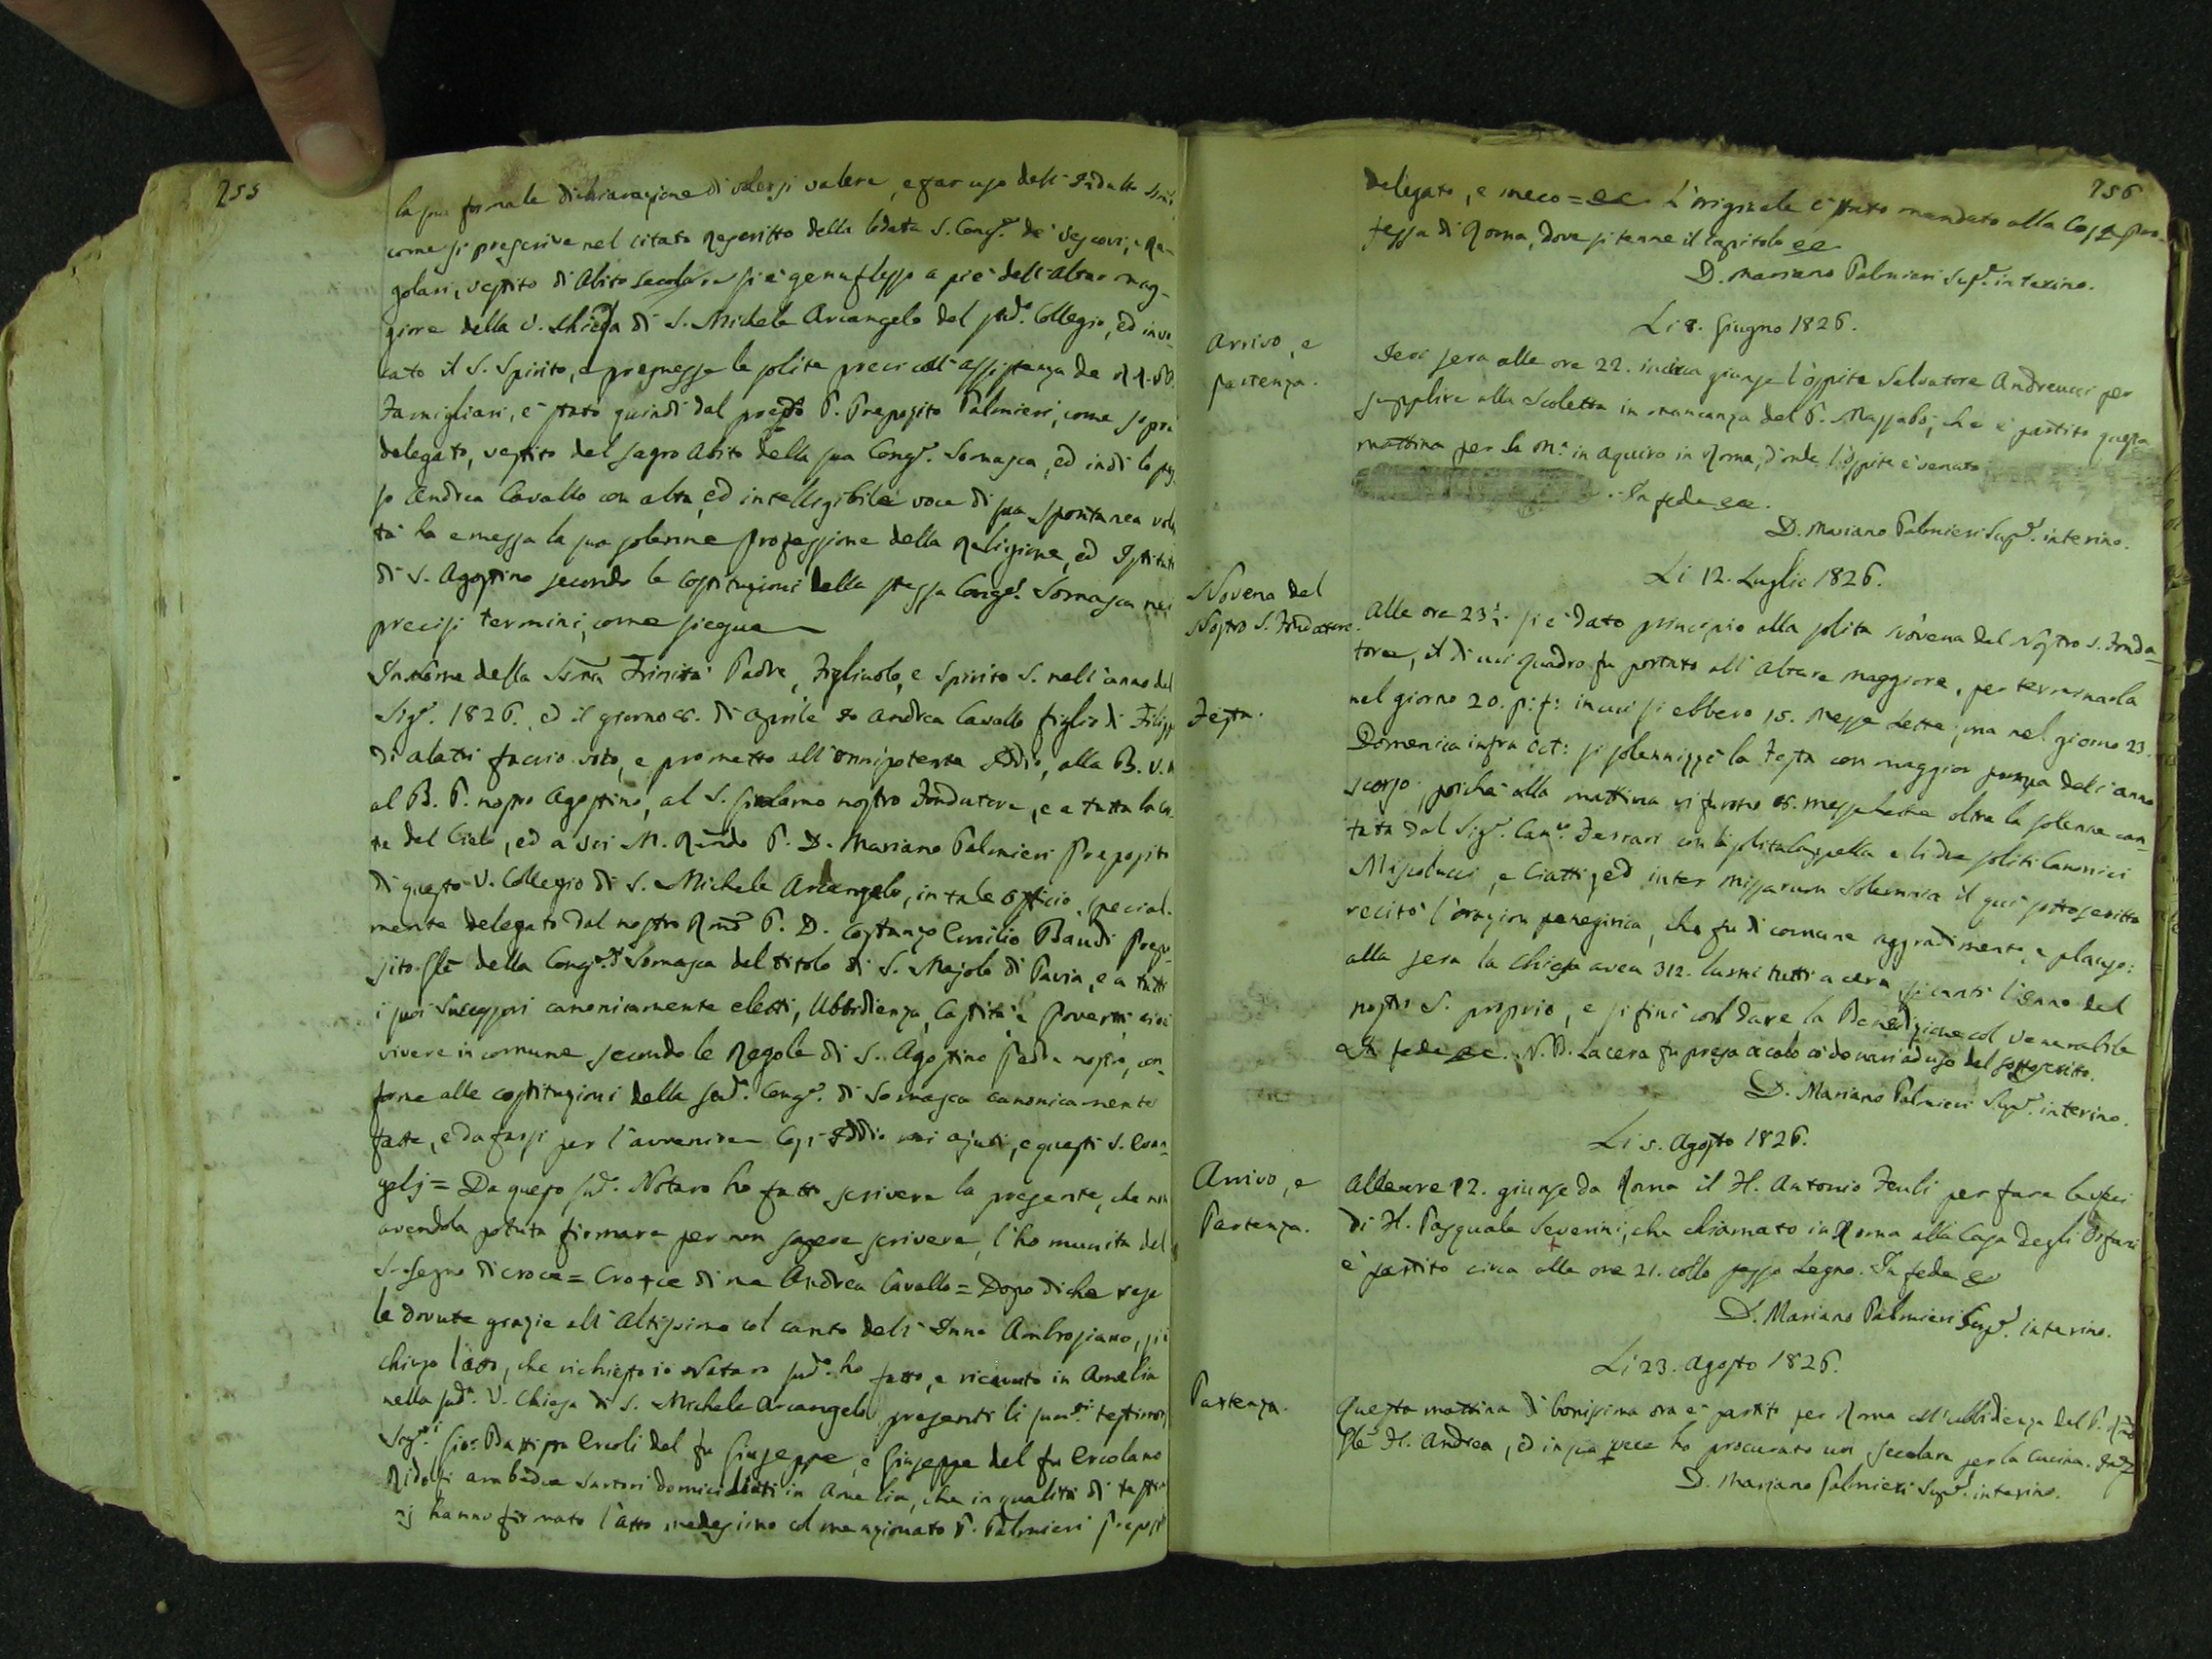 255
la sua formale dichiarazione di volersi valere, e far uso dell'Indulto
come si prescrive nel citato Rescritto della lodata S. Cong.e de' Vescovi, e Re-
golari, vestito di Abito secolare si è genuflesso a piè dell'Altar mag-
giore della V. Chiesa di S. Michele Arcangelo del sud.o Collegio, ed invo-
cato il S. Spirito, e premesse le solite preci coll'assistenza de
Famigliari, è stato quindi dal P. Preposito Palmieri, come sopra
delegato, vestito del sagro Abito della sua Cong.e Somasca, ed indi lo stes-
so Andrea Cavallo con alta, ed intelligibile voce di sua spontanea volon
tà ha emessa la sua solenne Professione della Religione, ed Istituto
di S. Agostino secondo le Costituzioni della stessa Cong.e Somasca nei
precisi termini, come siegue
In Nome della SSma Trinità Padre, Figliuolo, e Spirito S. nell'anno del
Sig.e 1826. ed il giorno di Aprile Io Andrea Cavallo figlio di Filipp
di Alatri faccio voto, e prometto all'Onnipotente Iddio, alla B. V. M
al B. P. nostro Agostino, al S. Girolamo nostro Fondatore, e a tutta la Cor-
te del Cielo, ed a voi M. Rndo P. D. Mariano Palmieri Preposito
di questo V. Collegio di S. Michele Arcangelo, in tale officio special-
mente delegato dal nostro Rmo P. D. Costanzo Emilio Baudi Prepo-
sito Gle della Cong.e di Somasca del titolo di S. Majolo di Pavia, e a tutti
i suoi Successori canonicamente eletti, Ubbidienza, Castità e Povertà, cioè
vivere in comune secondo le Regole di S. Agostino Padre nostro, con-
forme alle costituzioni della sud.a Cong.e di Somasca canonicamente
fatte, e da farsi per l'avvenire Così Iddio mi ajuti, e questi S. Evan-
gelj = Da questo sud.o Notaro ho fatto scrivere la presente, che non
avendola potuta firmare per non sapere scrivere, l'ho munita del
S. segno di croce = Cro+ce di me Andrea Cavallo = Dopo di che rese
le dovute grazie all'Altissimo col canto dell'Inno Ambrosiano, si è
chiuso l'atto, che richiesto io Notaro sud.o ho fatto, e ricevuto in Amelia
nella sud.a V. Chiesa di S. Michele Arcangelo presenti li testimonj
Sig.ri Gio: Battista Ercoli del fu Giuseppe, e Giuseppe del fu Ercolano
Ridolfi ambedue Sartori domiciliati in Amelia, che in qualità di testim
nj hanno firmato l'atto medesimo col menzionato P. Palmieri Preposi
256
delegato, e meco = ec. L'originale è stato mandato alla Casa Pro-
fessa di Roma, dove si tenne il Capitolo ec
D. Mariano Palmieri Sup.e interino.
Li 8. Giugno 1826.
Arrivo, e
partenza.
Ieri sera alle ore 22. incirca giunse l'ospite Salvatore Andreucci per
supplire alla Scoletta in mancanza del P. Massabò, che è partito questa
mattina per S. Ma: in Aquiro in Roma, d'onde l'ospite è venuto
In fede ec.
D. Mariano Palmieri Sup.e interino.
Li 12. Luglio 1826.
Novena del
Nostro S. Fondatore.
Alle ore 23 1/2. si è dato principio alla solita Novena del Nostro S. Fonda-
tore, il di cui quadro fu portato all'Altare Maggiore, per terminarla
nel giorno 20. in cui si ebbero 15. Messe lette; ma nel giorno 23.
Festa.
Domenica infra Oct: si solennizzò la Festa con maggior pompa dell'anno
scorso; poiché alla mattina vi furono Messe lette oltre la solenne can-
tata dal Sig.e Can.o Ferrari con la solita Cappella e li due soliti Canonici
Miscolucci, e Ciatti, ed inter Missarum Solemnia il qui sottoscritto
recitò l'orazion panegirica, che fu di comune aggradimento, e plauso:
alla sera la Chiesa avea 312. lumi tutti a cera si cantò l'Inno del
nostro S. proprio, e si finì col dare la Benedizione col Venerabile
In fede ec. N. B. La cera fu presa a calo co' denari ad uso del sottoscritto.
D. Mariano Palmieri Sup.e interino.
Li 5. Agosto 1826.
Arrivo, e
Partenza.
Alle ore 12. giunse da Roma il F. Antonio Feuli per fare le veci
di F. Pasquale Severini, che chiamato in Roma alla Casa degli Orfani
è partito circa alle ore 21. collo stesso Legno. In fede ec
D. Mariano Palmieri Sup.e interino.
Li 23. Agosto 1826.
Partenza.
Questa mattina di bonissima ora è partito per Roma coll'ubbidienza del P. Rmo
Gle F. Andrea, ed in sua vece ho procurato un secolare per la Cucina.
D. Mariano Palmieri Sup.e interino.